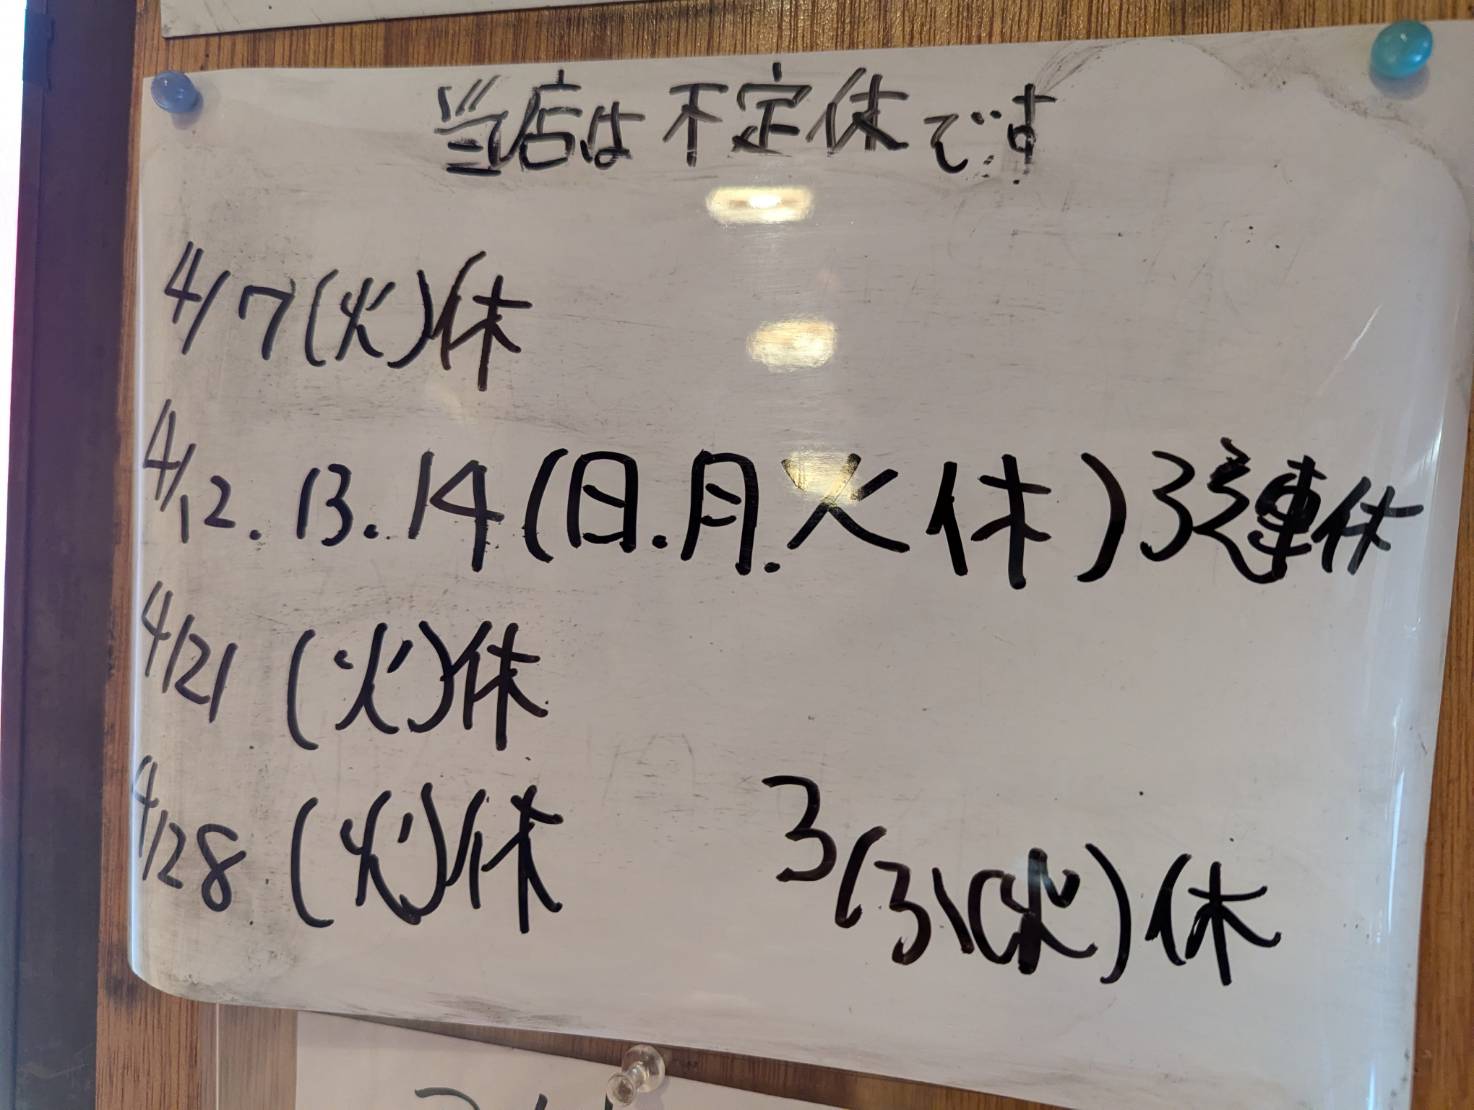 当店は不定休です
4/7(火)休
4/12.13.14(日.月.火休)3連休
4/21 (火)休
4/28 (火)休
3/31(火)休